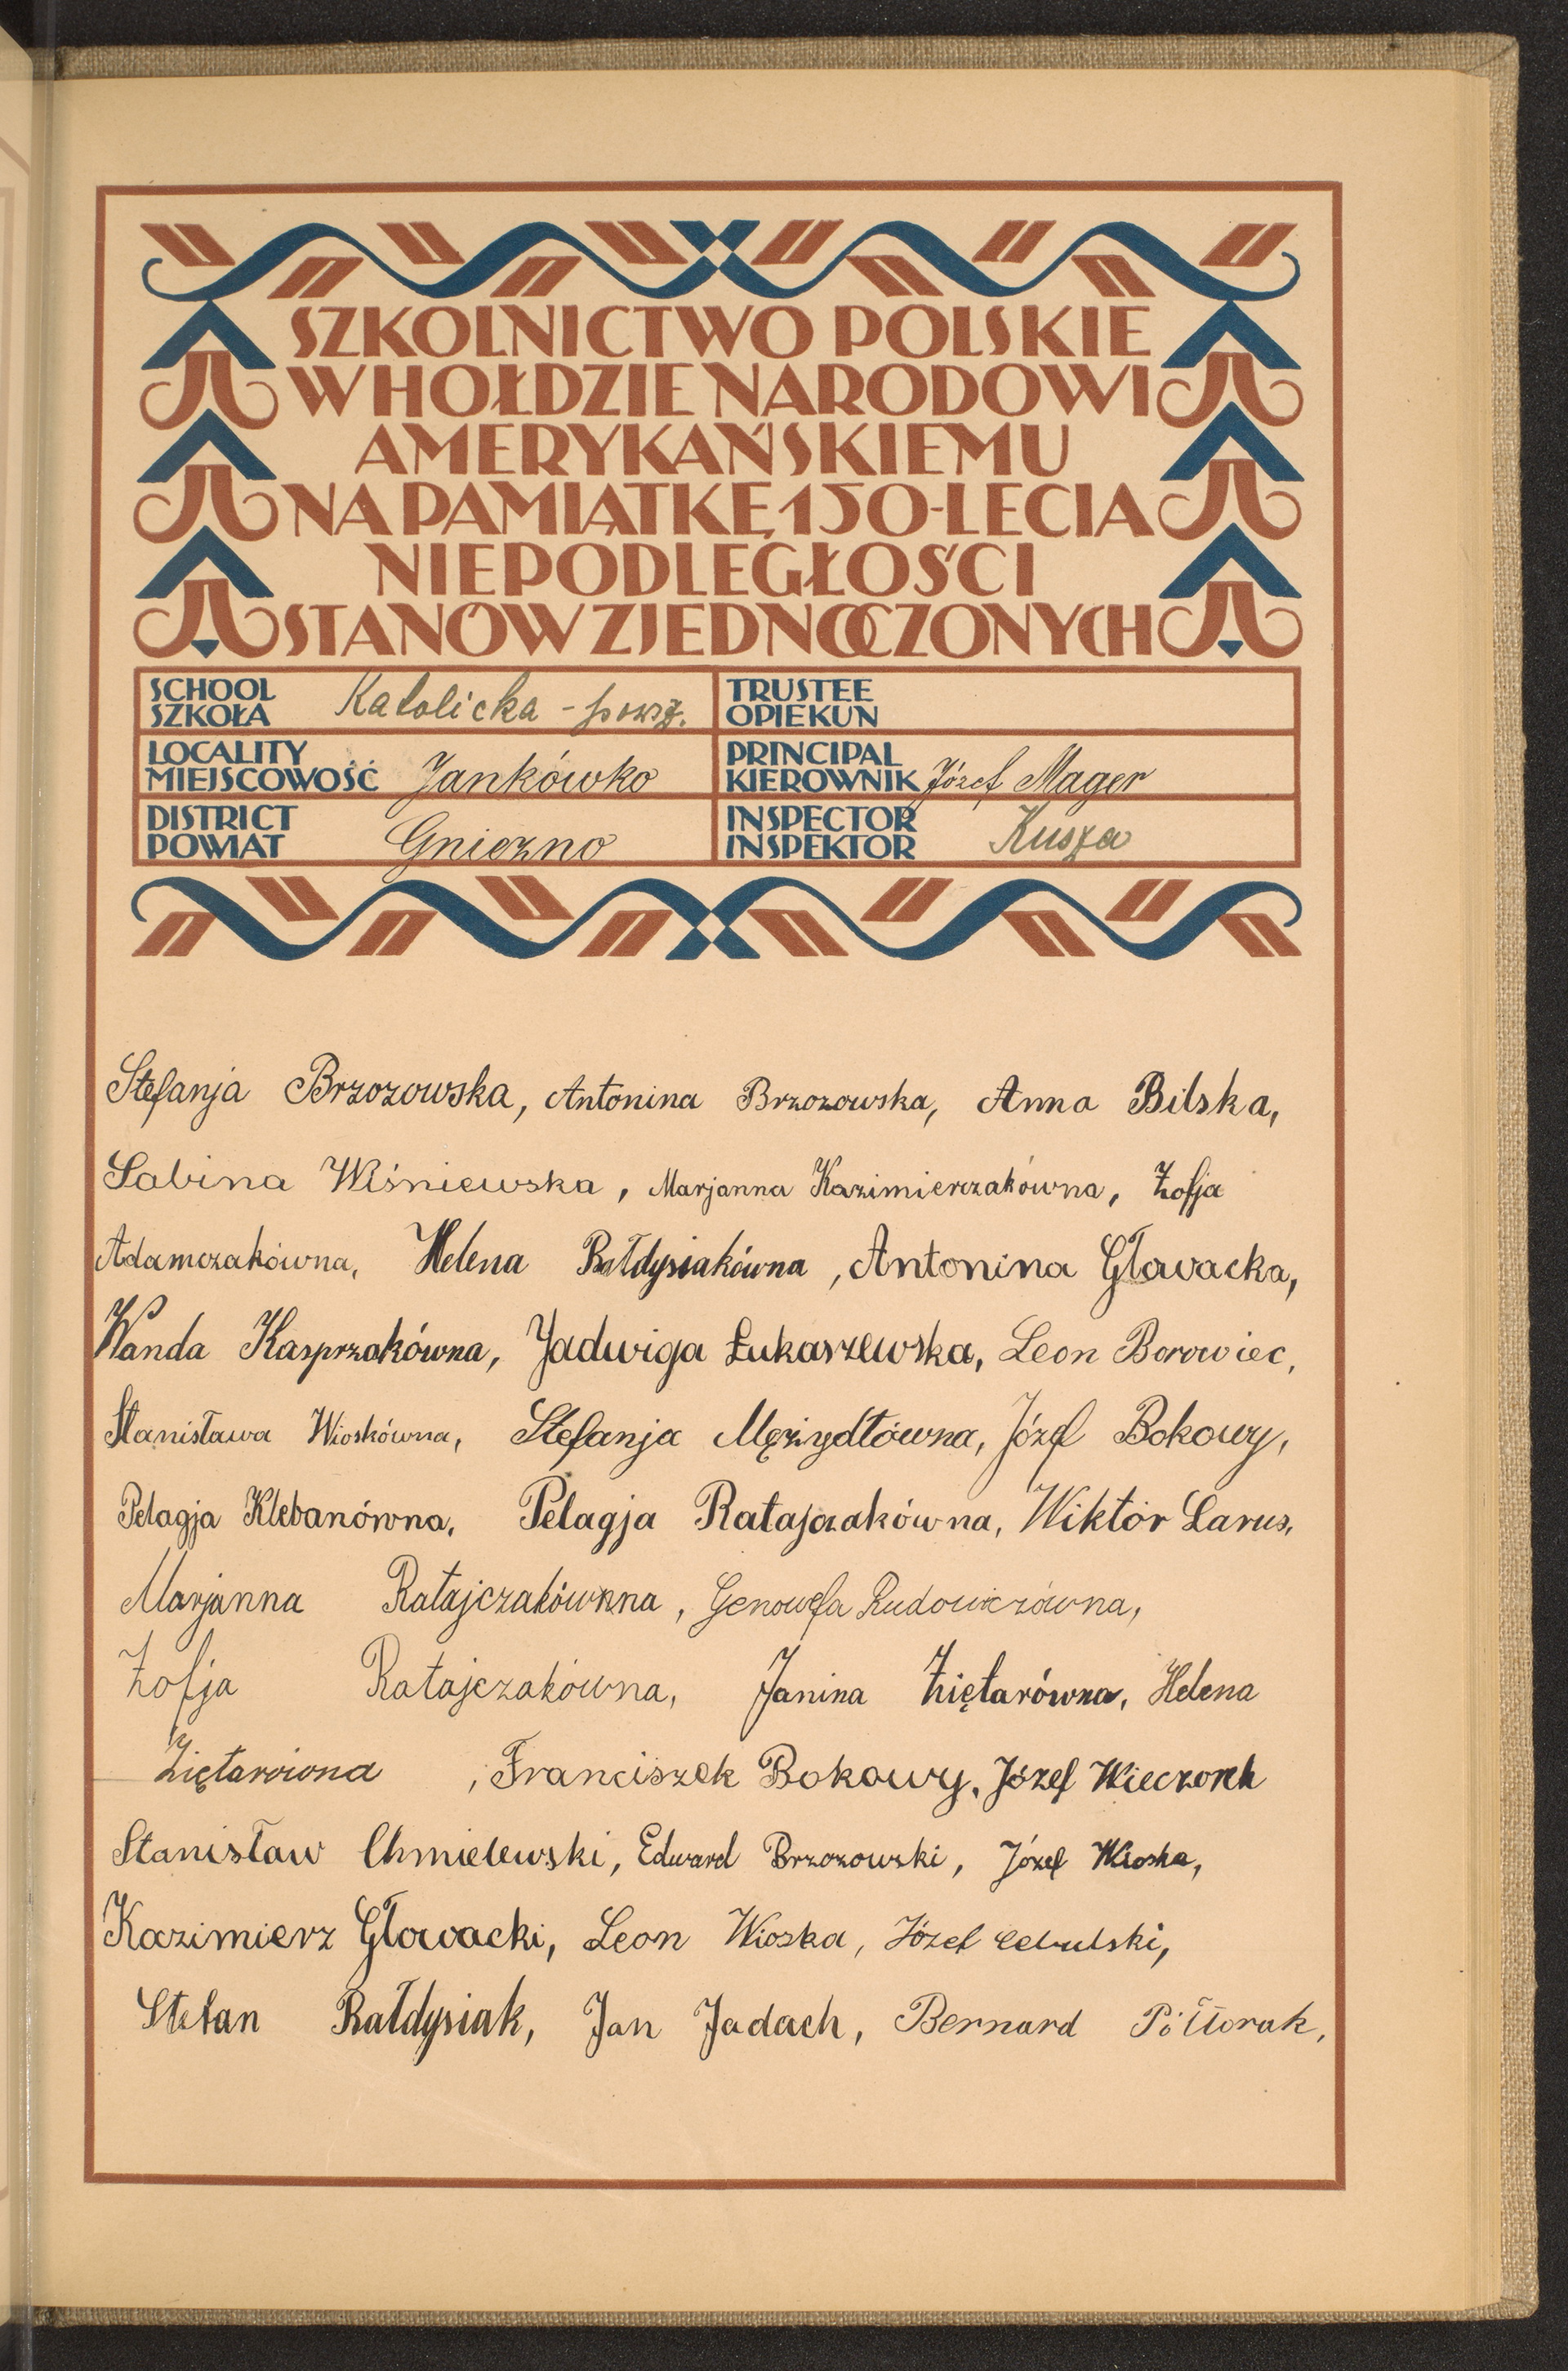 SZKOLNICTWO POLSKIE
W HOŁDZIE NARODOWI
AMERYKAŃSKIEMU
NA PAMIĄTKĘ 150-LECIA
NIEPODLEGŁOŚCI
STANÓW ZJEDNOCZONYCH
SCHOOL
SZKOŁA Katolicka - powsz.
TRUSTEE
OPIEKUN
LOCALITY
MIEJSCOWOŚĆ Jankówko
PRINCIPAL
KIEROWNIK Józef Mager
DISTRICT
POWIAT Gniezno
INSPECTOR
INSPEKTOR Kusza
Stefanja Brzozowska, Antonina Brzozowska, Anna Bilska,
Sabina Wiśniewska, Marjanna Kazimierczakówna, Zofja
Adamczakówna, Helena Bałdysiakówna, Antonina Głowacka,
Wanda Kasprzakówna, Jadwiga Łukaszewska, Leon Borowiec,
Stanisława Wioskówna, Stefanja Mężydłówna, Józef Bokowy,
Pelagja Klebanówna, Pelagja Ratajczakówna, Wiktor Larus,
Marjanna Ratajczakównna, Genowefa Rudowiczówna,
Zofja Ratajczakówna, Janina Ziętarówna, Helena
Ziętarówna, Franciszek Bokowy, Józef Wieczorek
Stanisław Chmielewski, Edward Brzozowski, Józef Wioska,
Kazimierz Głowacki, Leon Wioska, Józef Cebulski,
Stefan Bałdysiak, Jan Jadach, Bernard Półtorak,